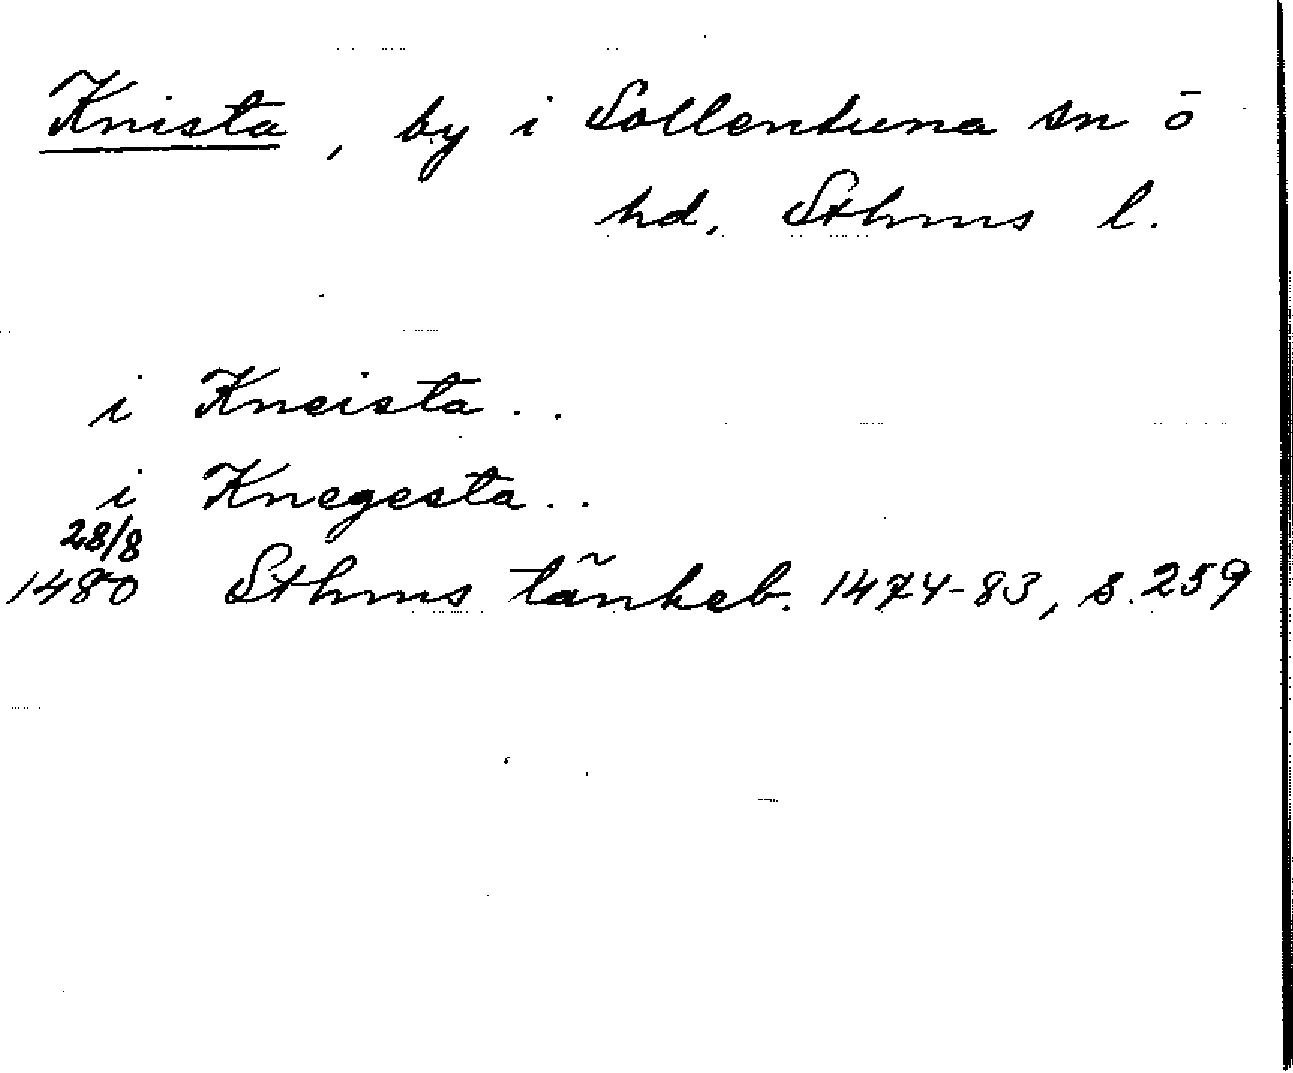 Knista, by i Sollentuna sn ō
hd, Sthms l.
i Kneista . .
i Knegesta . .
28/8
1480 Sthms tänkeb. 1474-83, s. 259